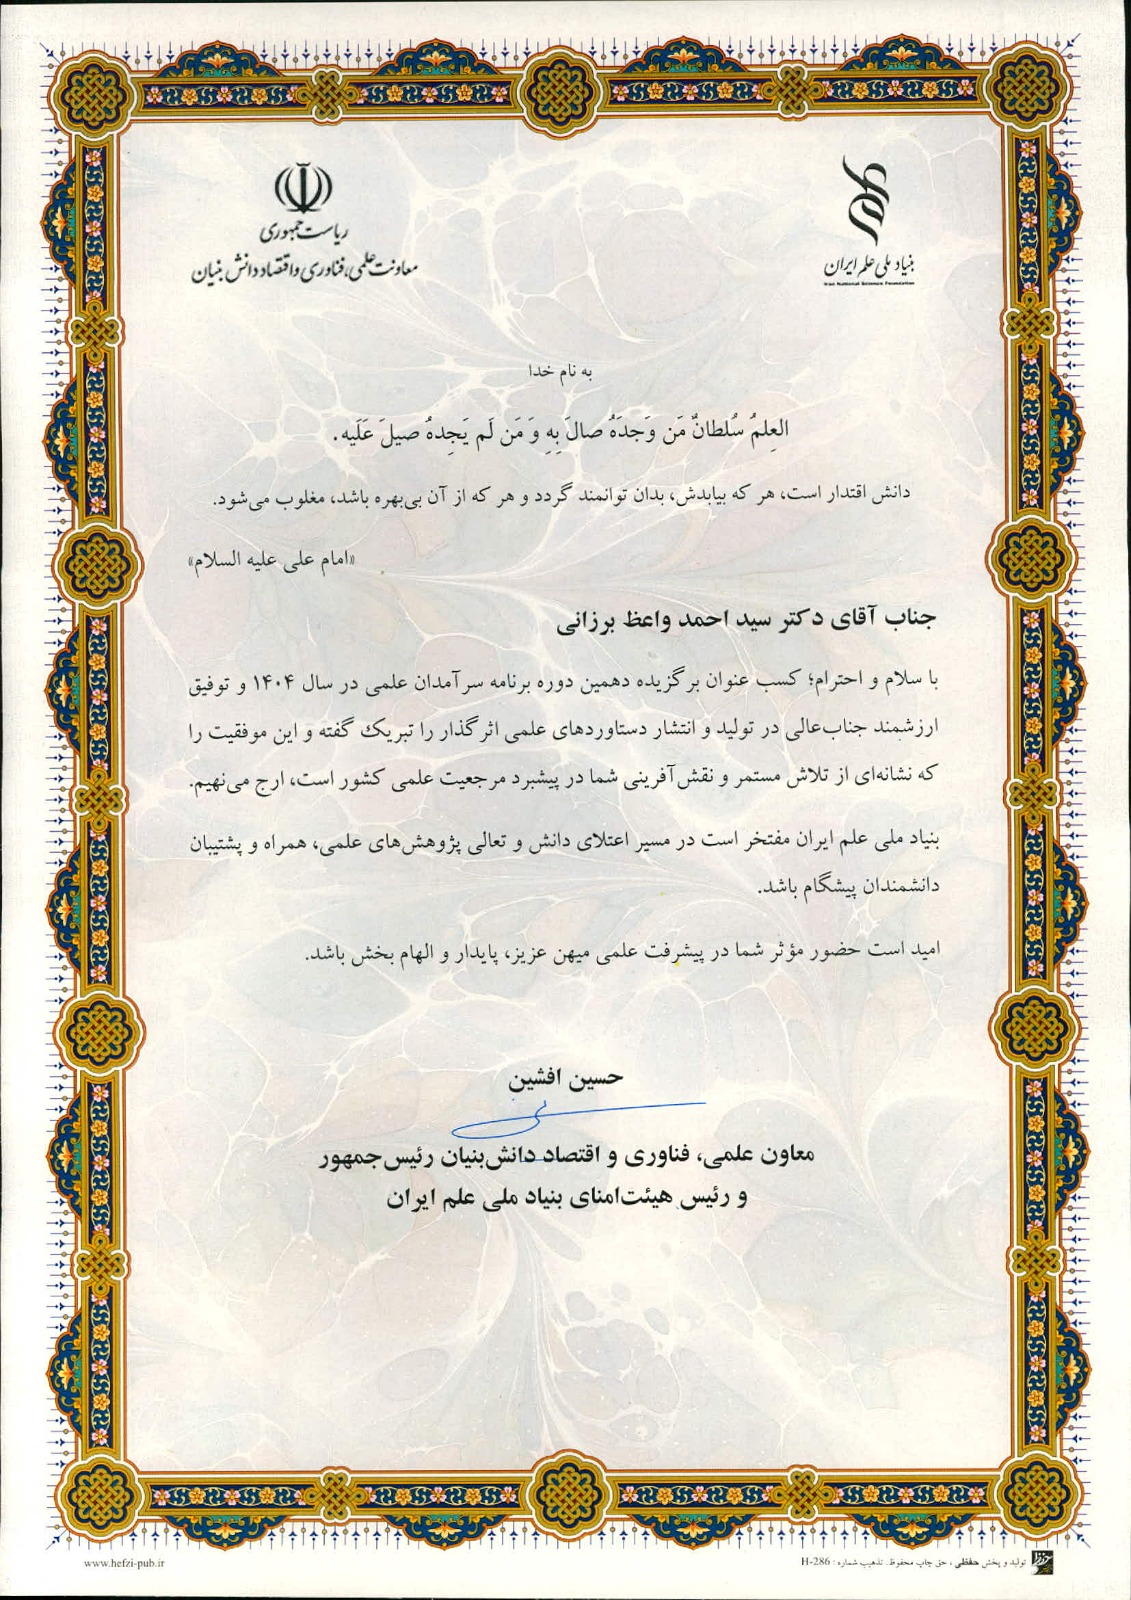 بنیاد ملی علم ایران
Iran National Science Foundation
ریاست جمهوری
معاونت علمی، فناوری و اقتصاد دانش بنیان
به نام خدا
العِلمُ سُلطانٌ مَن وَجدَهُ صالَ بِهِ وَ مَن لَم یَجِدهُ صیلَ عَلَیه.
دانش اقتدار است، هر که بیابدش، بدان توانمند گردد و هر که از آن بی‌بهره باشد، مغلوب می‌شود.
«امام علی علیه السلام»
جناب آقای دکتر سید احمد واعظ برزانی
با سلام و احترام؛ کسب عنوان برگزیده دهمین دوره برنامه سرآمدان علمی در سال ۱۴۰۴ و توفیق
ارزشمند جناب‌عالی در تولید و انتشار دستاوردهای علمی اثرگذار را تبریک گفته و این موفقیت را
که نشانه‌ای از تلاش مستمر و نقش‌آفرینی شما در پیشبرد مرجعیت علمی کشور است، ارج می‌نهیم.
بنیاد ملی علم ایران مفتخر است در مسیر اعتلای دانش و تعالی پژوهش‌های علمی، همراه و پشتیبان
دانشمندان پیشگام باشد.
امید است حضور مؤثر شما در پیشرفت علمی میهن عزیز، پایدار و الهام بخش باشد.
حسین افشین
معاون علمی، فناوری و اقتصاد دانش‌بنیان رئیس‌جمهور
و رئیس هیئت‌امنای بنیاد ملی علم ایران
تولید و پخش حفظی ، حق چاپ محفوظ. تذهیب شماره : H-286
www.hefzi-pub.ir